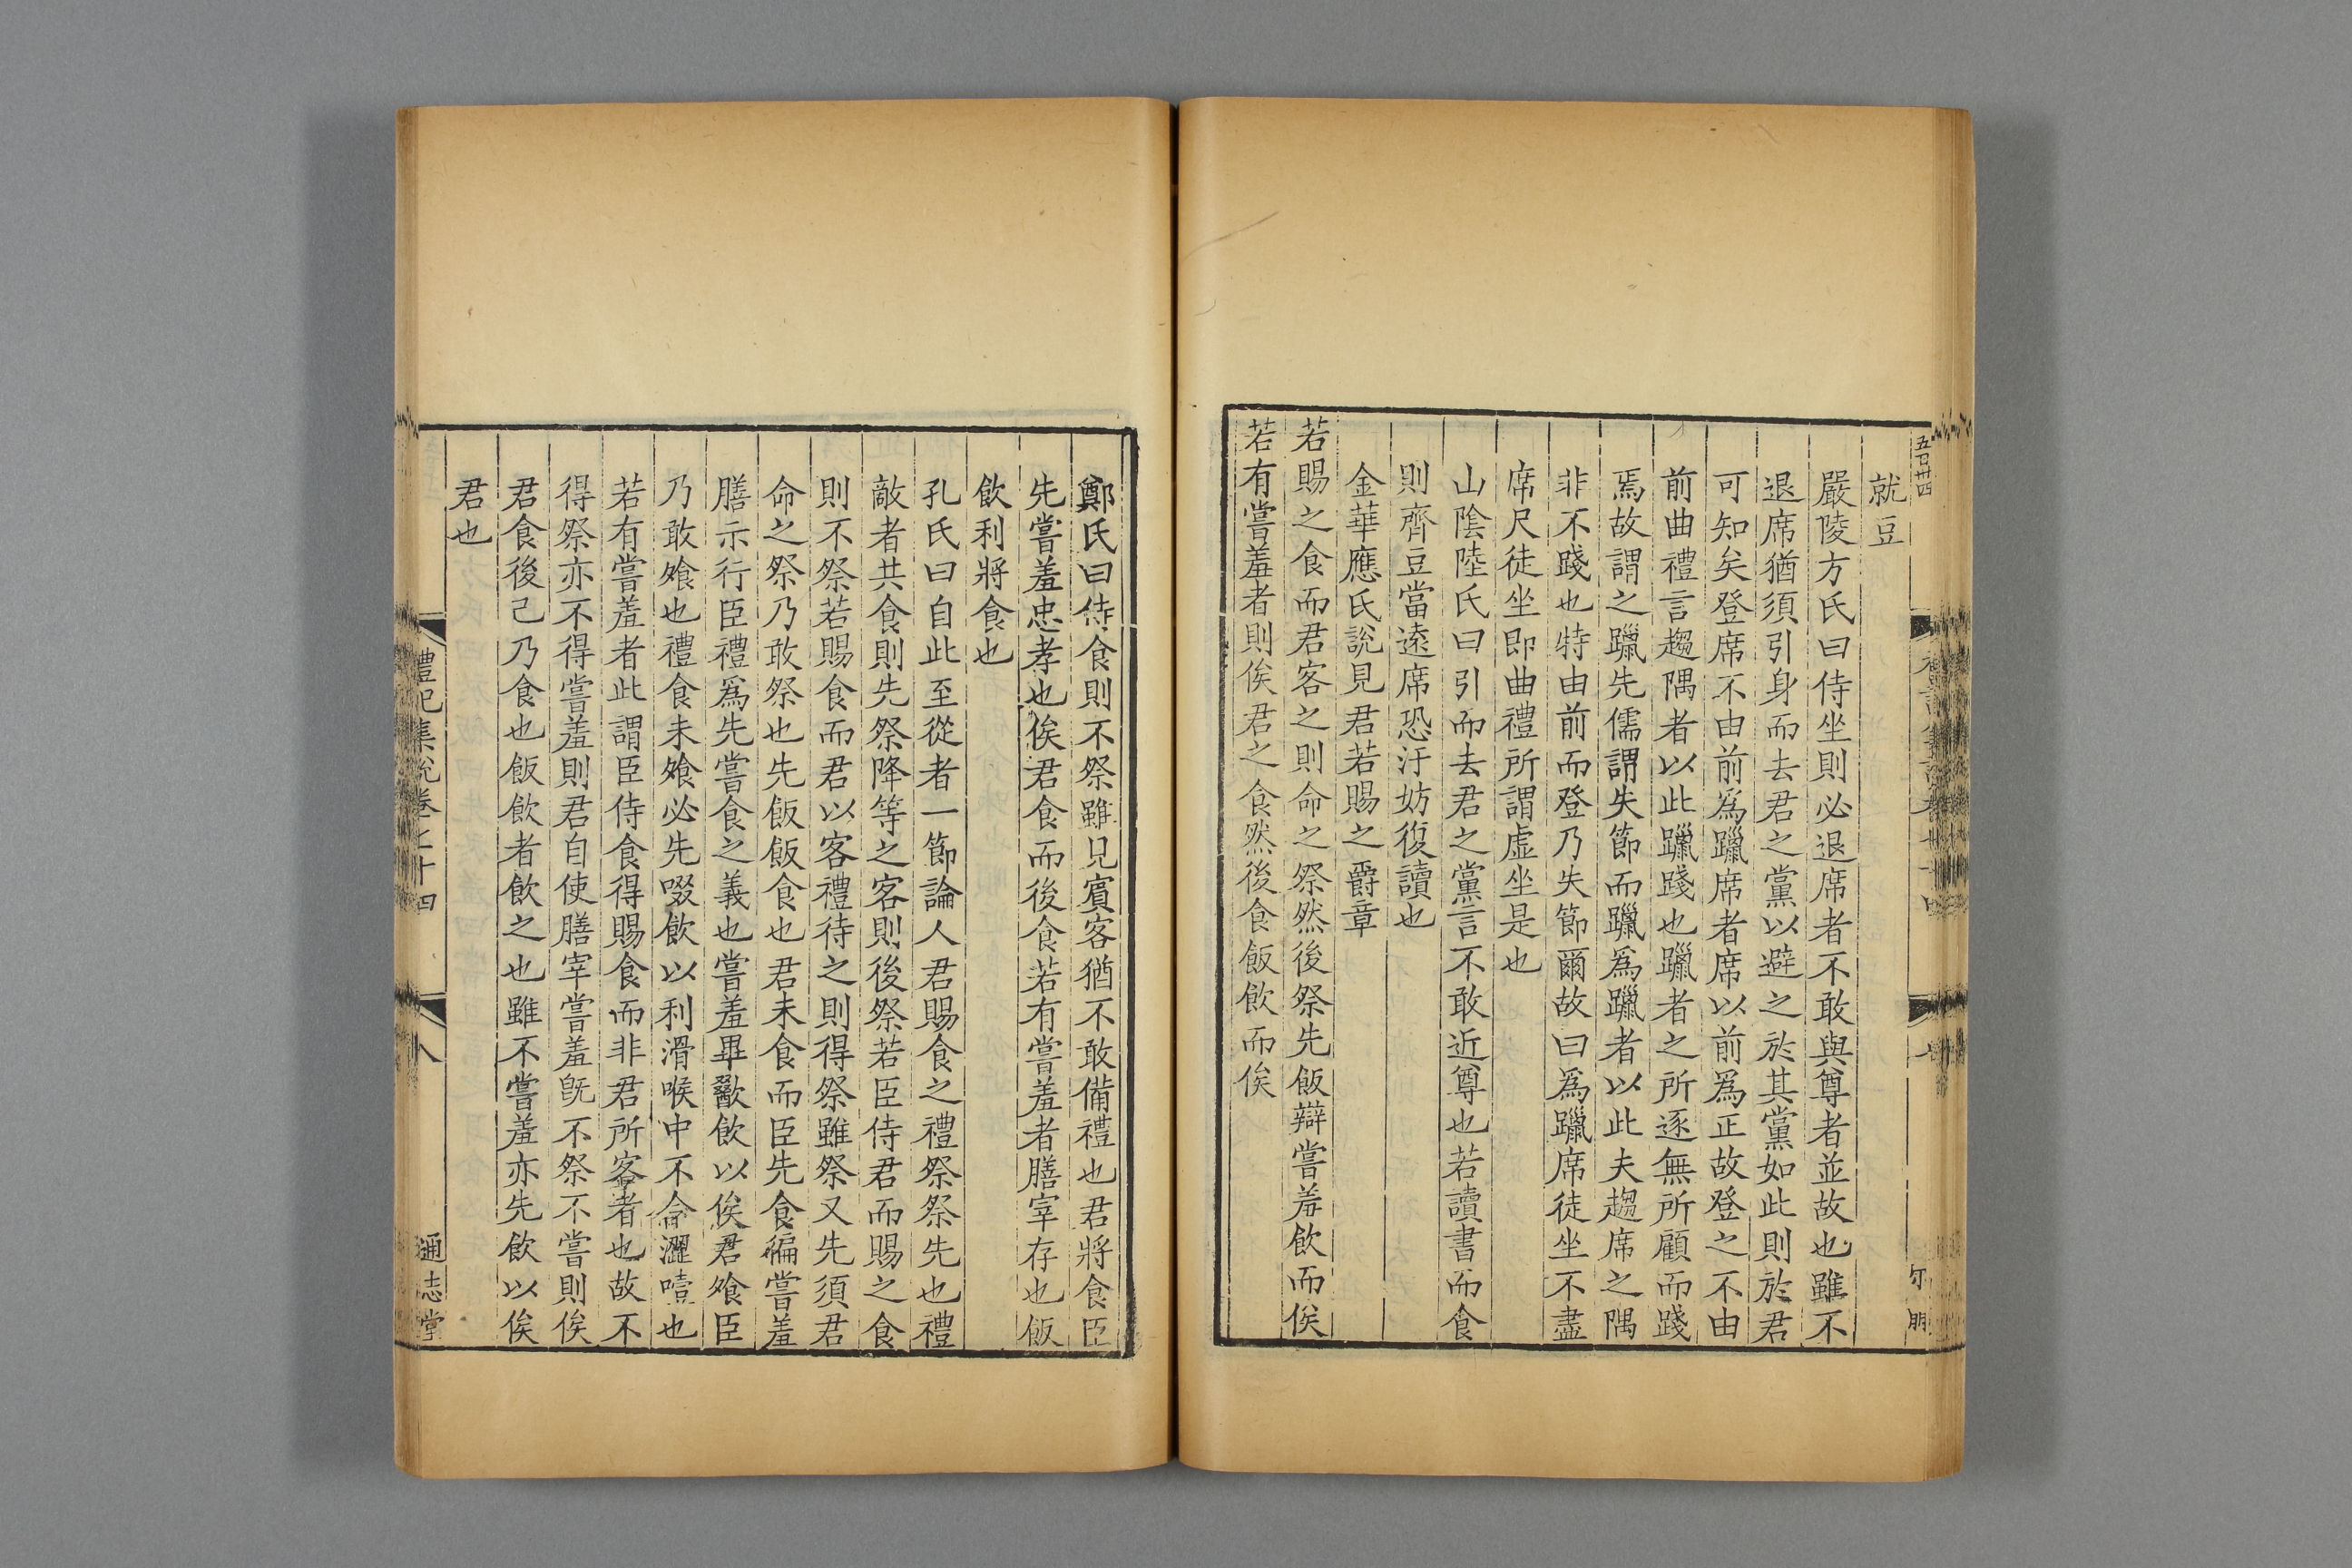 就豆
嚴陵方氏曰侍坐則必退席者不敢與尊者並故也雖不
退席猶須引身而去君之黨以避之於其黨如此則於君
可知矣登席不由前為躐席者席以前為正故登之不由
前曲禮言趨隅者以此躐踐也躐者之所逐無所顧而踐
焉故謂之躐先儒謂失節而躐為躐者以此夫趨席之隅
非不踐也特由前而登乃失節爾故曰為躐席徒坐不盡
席尺徒坐即曲禮所謂虛坐是也
山陰陸氏曰引而去君之黨言不敢近尊也若讀書而食
則齊豆當遠席恐汙妨復讀也
金華應氏說見君若賜之爵章
若賜之食而君客之則命之祭然後祭先飯辯嘗羞飲而俟
若有嘗羞者則俟君之食然後食飯飲而俟
鄭氏曰侍食則不祭雖見賓客猶不敢備禮也君將食臣
先嘗羞忠孝也俟君食而後食若有嘗羞者膳宰存也飯
飲利將食也
孔氏曰自此至從者一節論人君賜食之禮祭祭先也禮
敵者共食則先祭降等之客則後祭若臣侍君而賜之食
則不祭若賜食而君以客禮待之則得祭雖祭又先須君
命之祭乃敢祭也先飯飯食也君未食而臣先食徧嘗羞
膳示行臣禮為先嘗食之義也嘗羞畢歠飲以俟君飧臣
乃敢飧也禮食未飧必先啜飲以利滑喉中不令澀噎也
若有嘗羞者此謂臣侍食得賜食而非君所客者也故不
得祭亦不得嘗羞則君自使膳宰嘗羞旣不祭不嘗則俟
君食後己乃食也飯飲者飲之也雖不嘗羞亦先飲以俟
君也
禮記集說卷七十四
八
通志堂